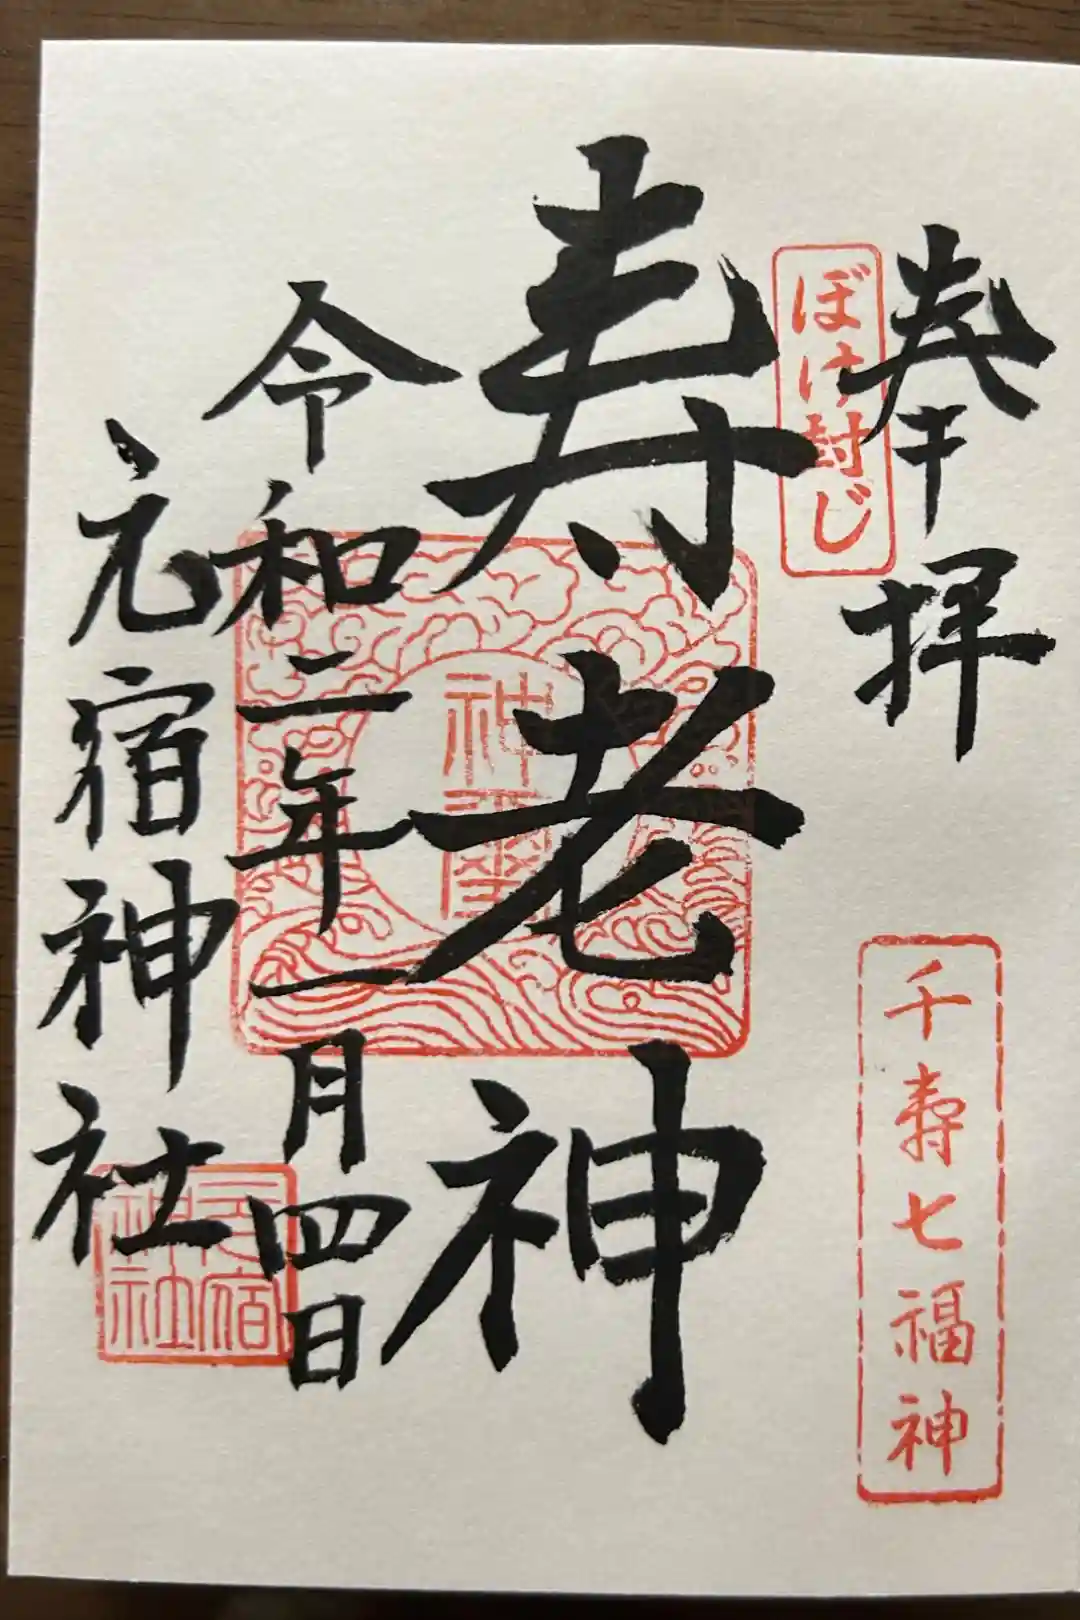 奉拝
ぼけ封じ
千寿七福神
寿老神
令和二年一月四日
元宿神社
元宿
神社